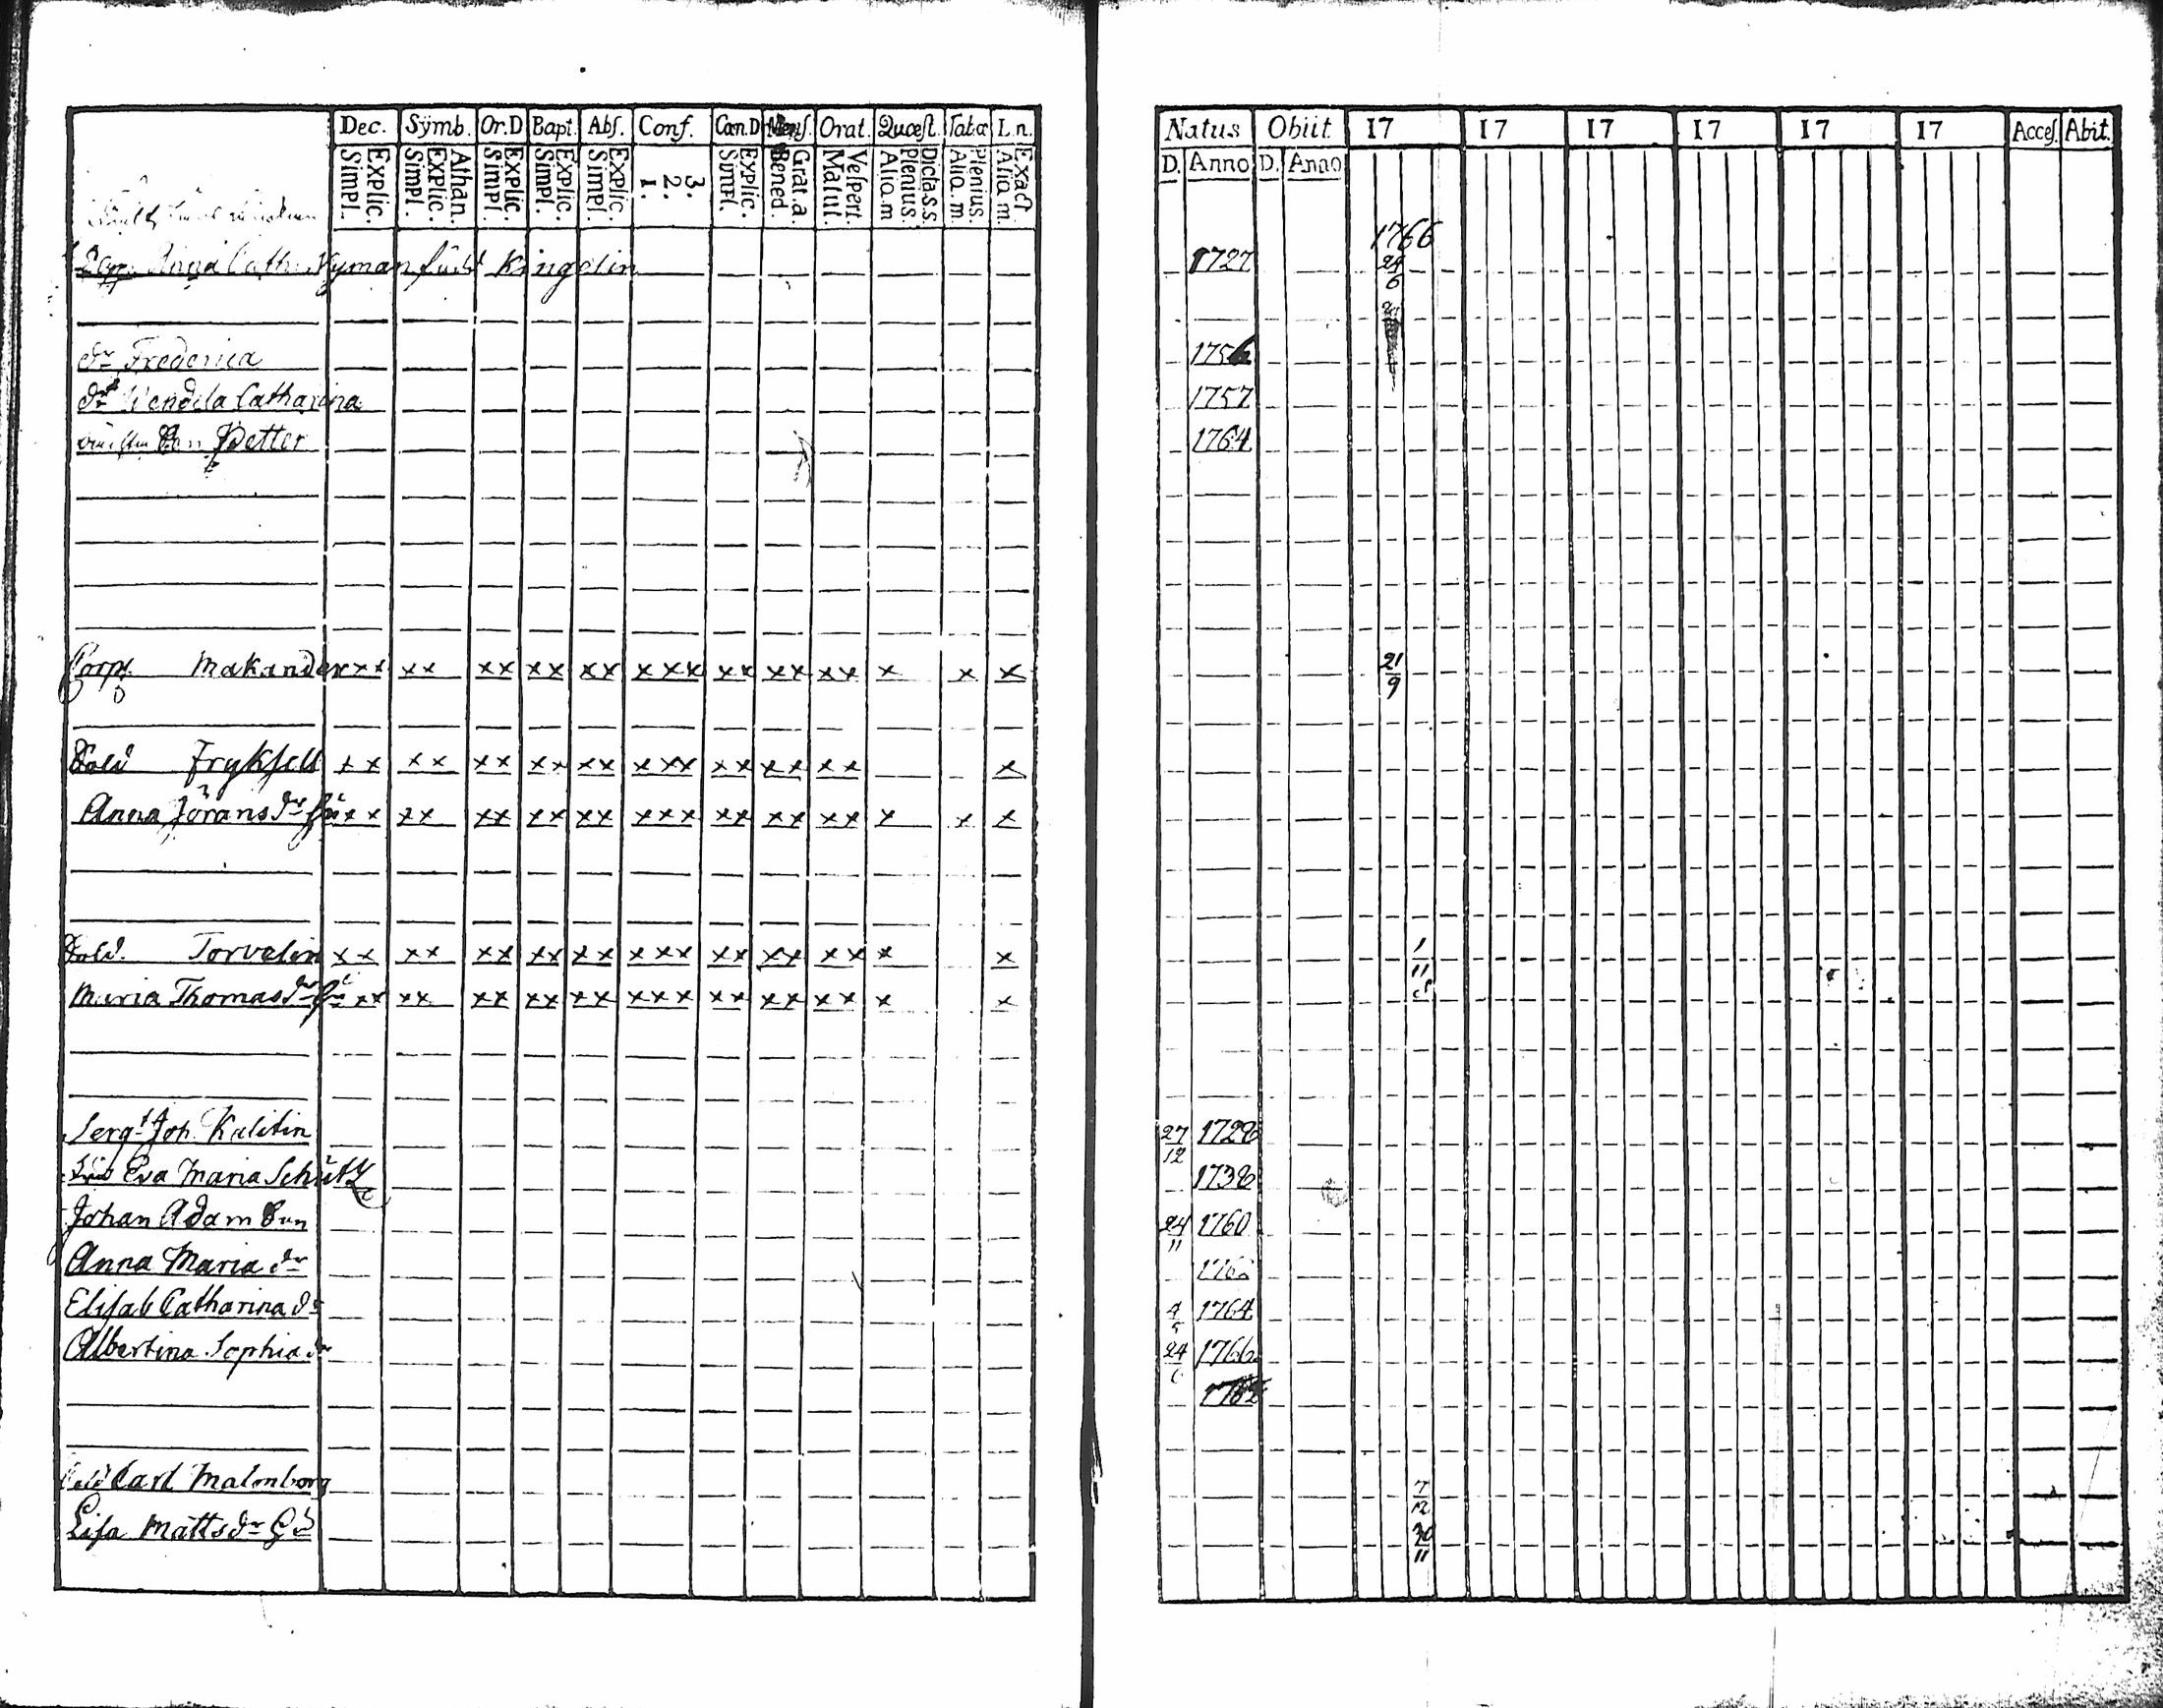 Dec. Sÿmb. Or.D Bapt. Abſ. Conf. Can.D Menſ. Orat. Quæſt. Tabæ L.n.
Explic. Simpl. Athan. Explic. Simpl. Explic. Simpl. Explic. Simpl. Explic. Simpl. 3. 2. 1. Explic. Simpl. Grat.a. Bened. Veſpert. Matut. Dicta.s.s. Plenius. Aliq.m Plenius. Aliq.m. Exact. Aliq.m.
Anna Cath. Nyman född Kingelin
dr Frederica
dr Wendela Catharina
Petter
Corp. Makander xx xx xx xx xx xxx xx xx xx x x x
Sold Frykfell xx xx xx xx xx xxx xx xx xx x
Anna Jörans dr hu xx xx xx xx xx xxx xx xx xx x x x
Sold. Torvelin xx xx xx xx xx xxx xx xx xx x x
Maria Thomas dr xx xx xx xx xx xxx xx xx xx x x
Sergt Joh. Kalitin
Eva Maria Schütz
Johan Adam Son
Anna Maria dr
Elisab Catharina dr
Albertina Sophia dr
Carl Malmborg
Lisa Matts dr
Natus Obiit 17 17 17 17 17 17 Acceſ. Abit.
D. Anno D. Anno
1766
1727 24/6
1756
1757
1764
21/9
1/11
27/12 1728
1738
24/11 1760
4/5 1764
24 1766
1762
7/12
30/11